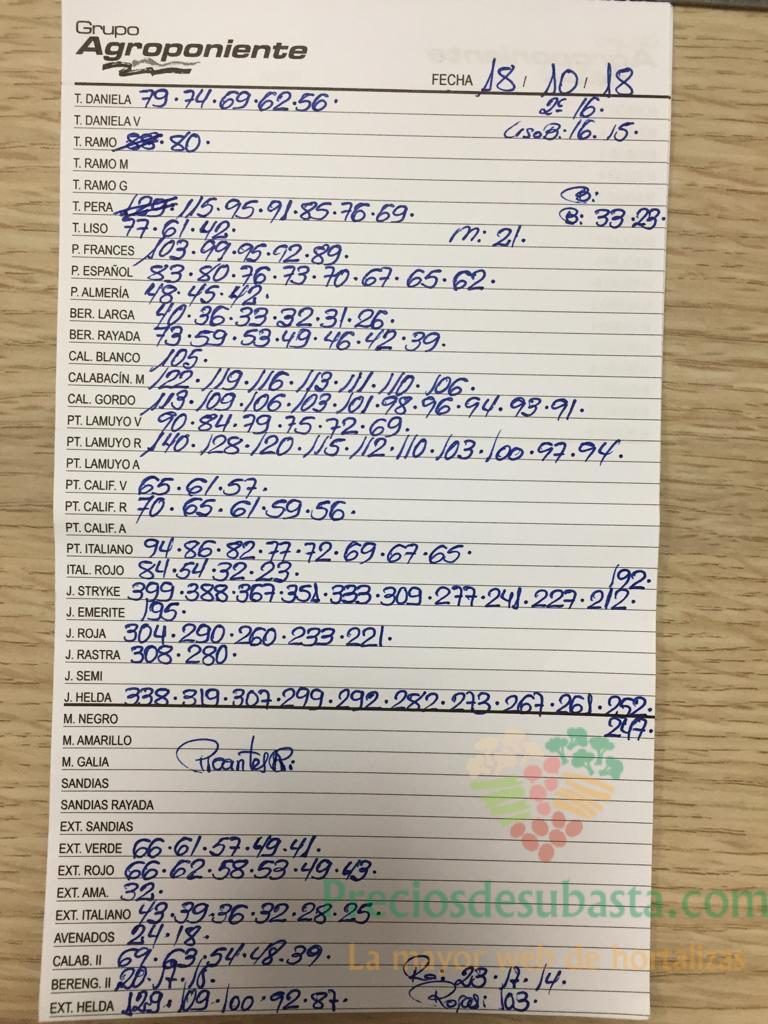 Grupo
Agroponiente
FECHA 18 / 10 / 18
T. DANIELA 79·74·69·62·56· 2ª 16·
T. DANIELA V LisoB: 16. 15·
T. RAMO 80·
T. RAMO M
T. RAMO G B:
T. PERA 115·95·91·85·76·69· B: 33·23·
T. LISO 77·61·42· M: 21·
P. FRANCES 103·99·95·92·89·
P. ESPAÑOL 83·80·76·73·70·67·65·62·
P. ALMERÍA 48·45·42·
BER. LARGA 40·36·33·32·31·26·
BER. RAYADA 73·59·53·49·46·42·39·
CAL. BLANCO 105·
CALABACÍN. M 122·119·116·113·111·110·106·
CAL. GORDO 113·109·106·103·101·98·96·94·93·91·
PT. LAMUYO V 90·84·79·75·72·69·
PT. LAMUYO R 140·128·120·115·112·110·103·100·97·94·
PT. LAMUYO A
PT. CALIF. V 65·61·57·
PT. CALIF. R 70·65·61·59·56·
PT. CALIF. A
PT. ITALIANO 94·86·82·77·72·69·67·65·
ITAL. ROJO 84·54·32·23· 192·
J. STRYKE 399·388·367·351·333·309·277·241·227·212·
J. EMERITE 195·
J. ROJA 304·290·260·233·221·
J. RASTRA 308·280·
J. SEMI
J. HELDA 338·319·307·299·292·282·273·267·261·252·
M. NEGRO 247·
M. AMARILLO
M. GALIA Picantes R:
SANDIAS
SANDIAS RAYADA
EXT. SANDIAS
EXT. VERDE 66·61·57·49·41·
EXT. ROJO 66·62·58·53·49·43·
EXT. AMA. 32·
Preciosdesubasta.com
EXT. ITALIANO 43·39·36·32·28·25·
AVENADOS 24·18·
CALAB. II 69·63·54·48·39·
La mayor web de hortalizas
BERENG. II 20·17·
EXT. HELDA 129·109·100·92·87·
23·17·14·
103·